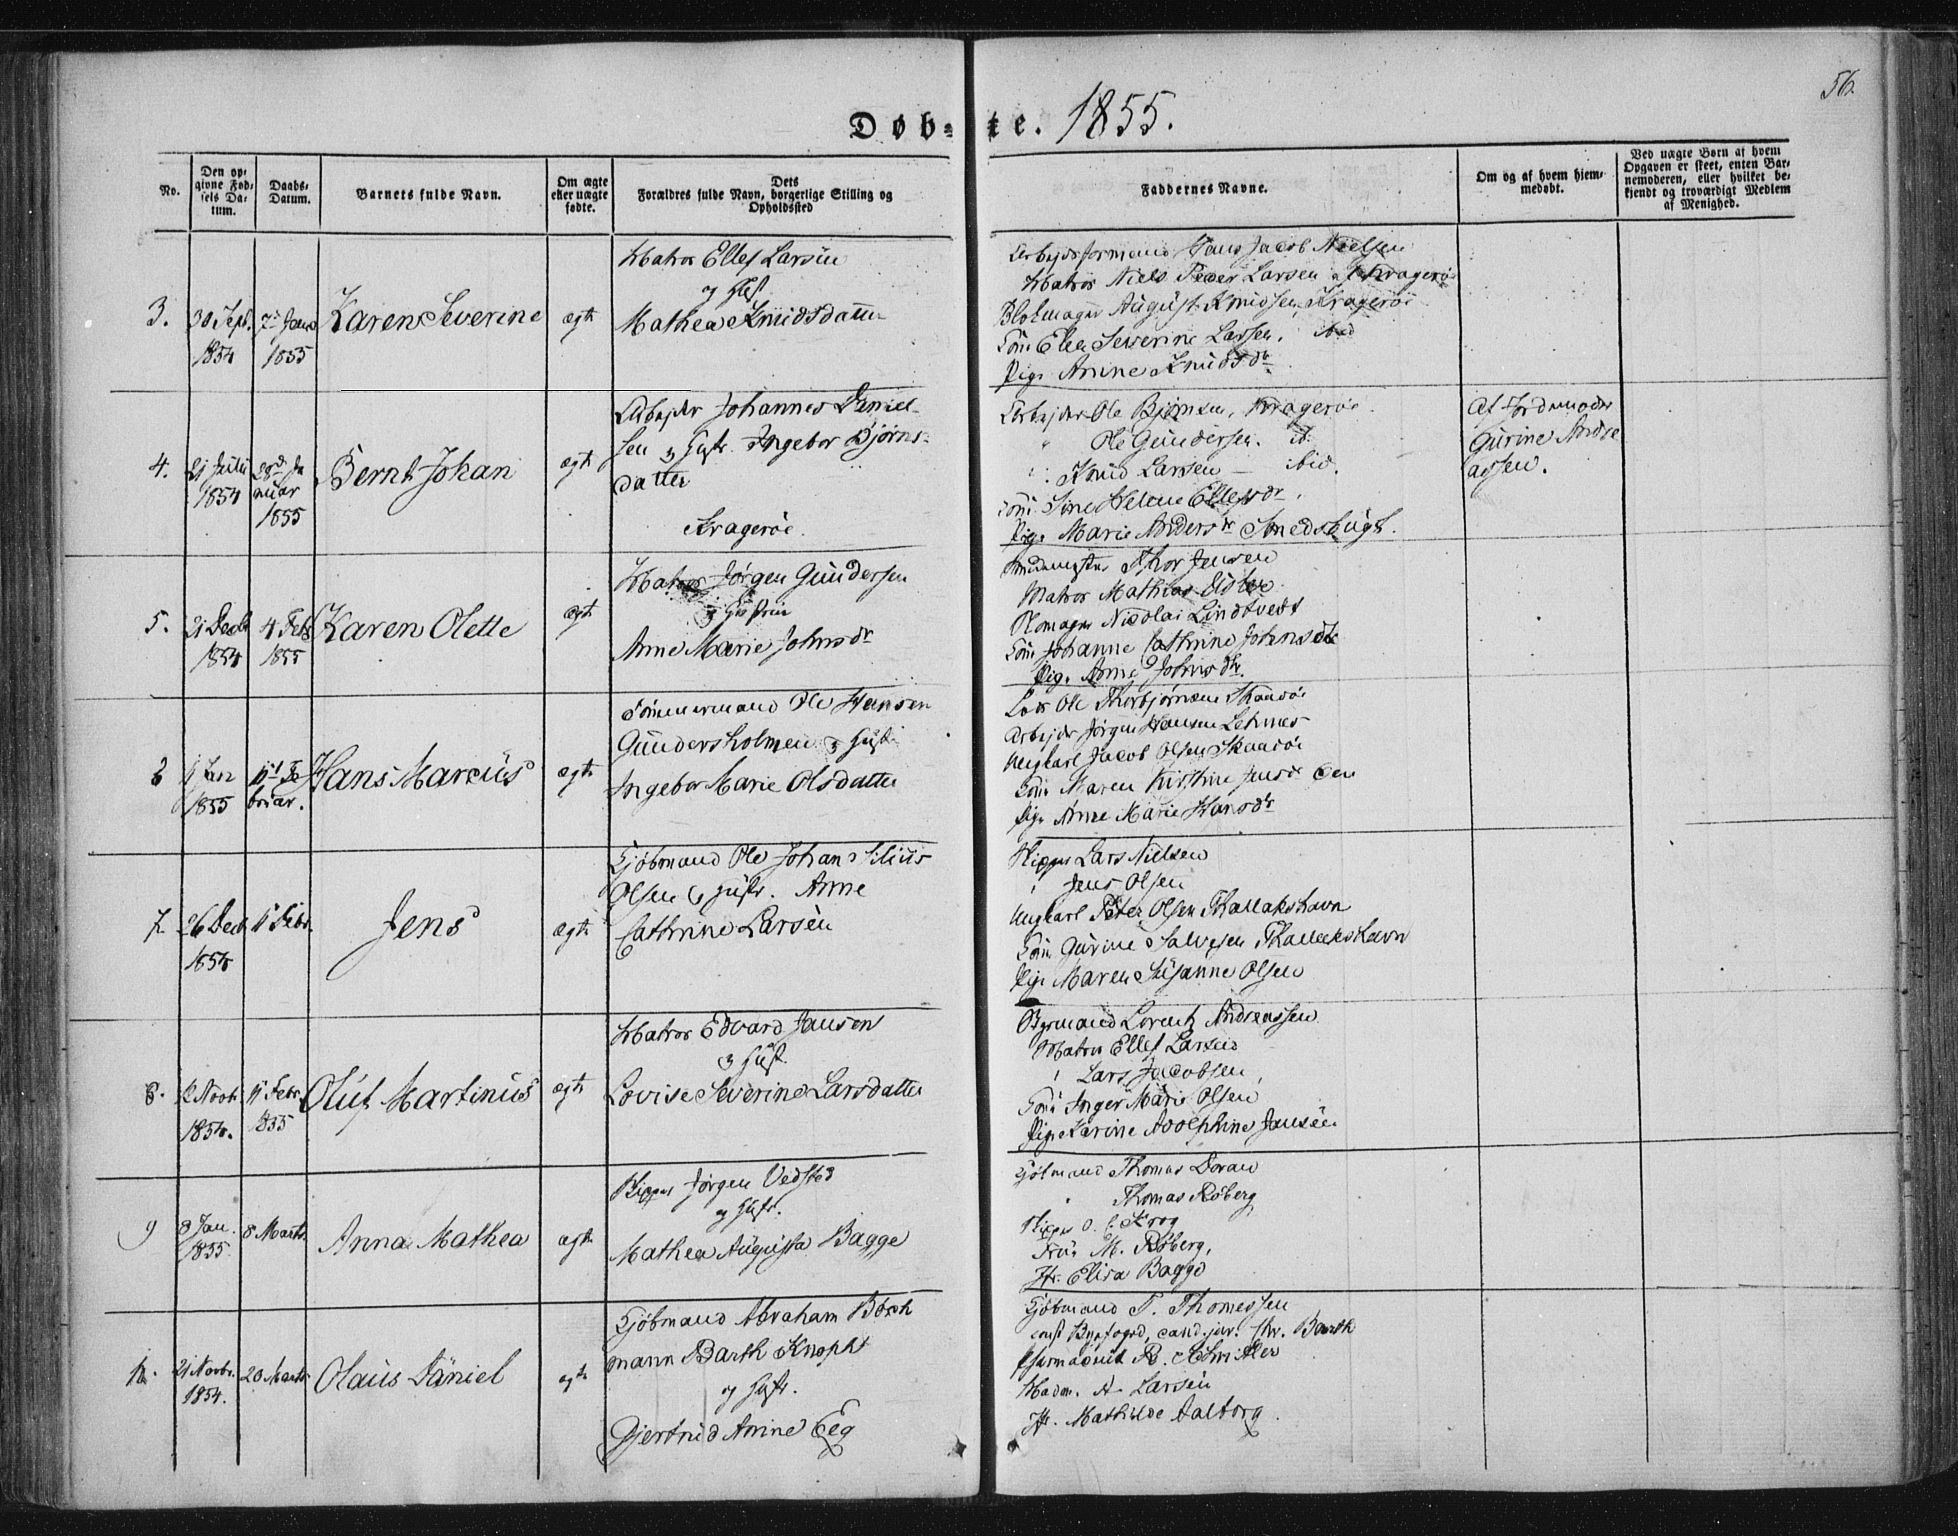 56.
Døb- te. 1855.
No.
Den op-
givne Fød-
sels Da-
tum.
Daabs-
Datum.
Barnets fulde Navn.
Om ægte
eller uægte
fødte.
Dets
Forældres fulde Navn, borgerlige Stilling og
Opholdssted
Faddernes Navne.
Om og af hvem hjem-
medøbt.
Ved uægte Børn af hvem
Opgaven er skeet, enten Bar-
nemoderen, eller hvilket be-
kjendt og troværdigt Medlem
af Menighed.
3.
30 Sept.
1854
7de Janr
1855
Karen Severine
ægte
Matros Ellef Larsen
og Hust
Mathea Knudsdatter
Arbejdsformand Hans Jacob Nielsen
Matros Niels Peder Larsen Kragerøe
Blokmager August Knudsen, Kragerøe
Kone Ellen Severine Larsen. ibid
Pige Anine Knudsdr
4.
21 Julii
1854
28de Ja
nuar
1855
Bernt Johan
ægte
Arbejder Johannes Daniel-
sen og Hustr. Ingebor Bjørns-
datter
Kragerøe.
Arbejder Ole Bjørnsen, Kragerøe
" Ole Gundersen. ib.
" Knud Larsen — ibid.
Kone Sine Helene Ellefsdr.
Pige Marie Andersdr Smedsbugt.
Af Jordemoder
Gurine Andre
assen.
5.
21 Decb
1854
4 Feb
1855
Karen Olette
ægte
Matros Jørgen Gundersen
og Hustrue
Anne Marie Johnsdr
Thor Jensen
Matros Mathias
Nicolai Lindtvedt
Kone Johanne Cathrine Johnsdr
Pige Anne Johnsdr.
6
1855
11te Fe
bruar.
Hans Marcus
ægte
Tømmermand Ole Hansen
Gundersholmen og Hust
Ingebor Marie Olsdatter
Lods Ole Thorbjørnsen Skaadøe
Arbejder Jørgen Hansen
Ungkarl Jacob Olsen Skaadøe
Kone Maren Kirstine Jensdr
Pige Anne Marie Hansdr
7
26 Decb
1854
11 Febr.
Jens
ægte
Kjøbmand Ole Johan Silius
Olsen og Hustr. Anne
Cathrine Larsen
Skipper Lars Nielsen
" Jens Olsen
Ungkarl Peter Olsen Thallakshavn
Kone Gurine Salvesen Thallakshavn
Pige Maren Susanne Olsen
8.
2 Novb
1854.
11 Febr
1855
Oluf Martinus
ægte
Matros Edvard Jansen
og Hust
Lovise Severine Larsdatter
Byemand Lorentz Andreassen
Matros Ellef Larsen
" Lars Jacobsen
Kone Inger Marie Olsen
Pige Karine Adolphine Jansen
9
8 Jan.
1855.
8 Marts
Anna Mathea
ægte
Skipper Jørgen Vedsted
og Hustr.
Mathea Augusta Bagge
Kjøbmand Thomas Doran
" Thomas Røberg
Skipper O. C. Krog
Frue M. Røberg,
Jfr. Elisa Bagge
10.
21 Novbr.
1854.
20 Marts
Olaus Daniel
ægte
Kjøbmand Abraham Bøch
mann Barth Knopht
og Hustr.
Gjertrud Anine Eeg
Kjøbmand T. Thomessen
const Byefoged, cand. jur. Chr. Barth
Pharmaceut R.
Madm. A. Larsen
Jfr. Mathilde Aalborg.